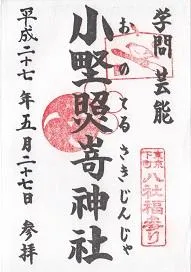 学問 芸能
小野照崎神社
おのてるさきじんじゃ
平成二十七年五月二十七日 参拝
東京
下町
八社福参り